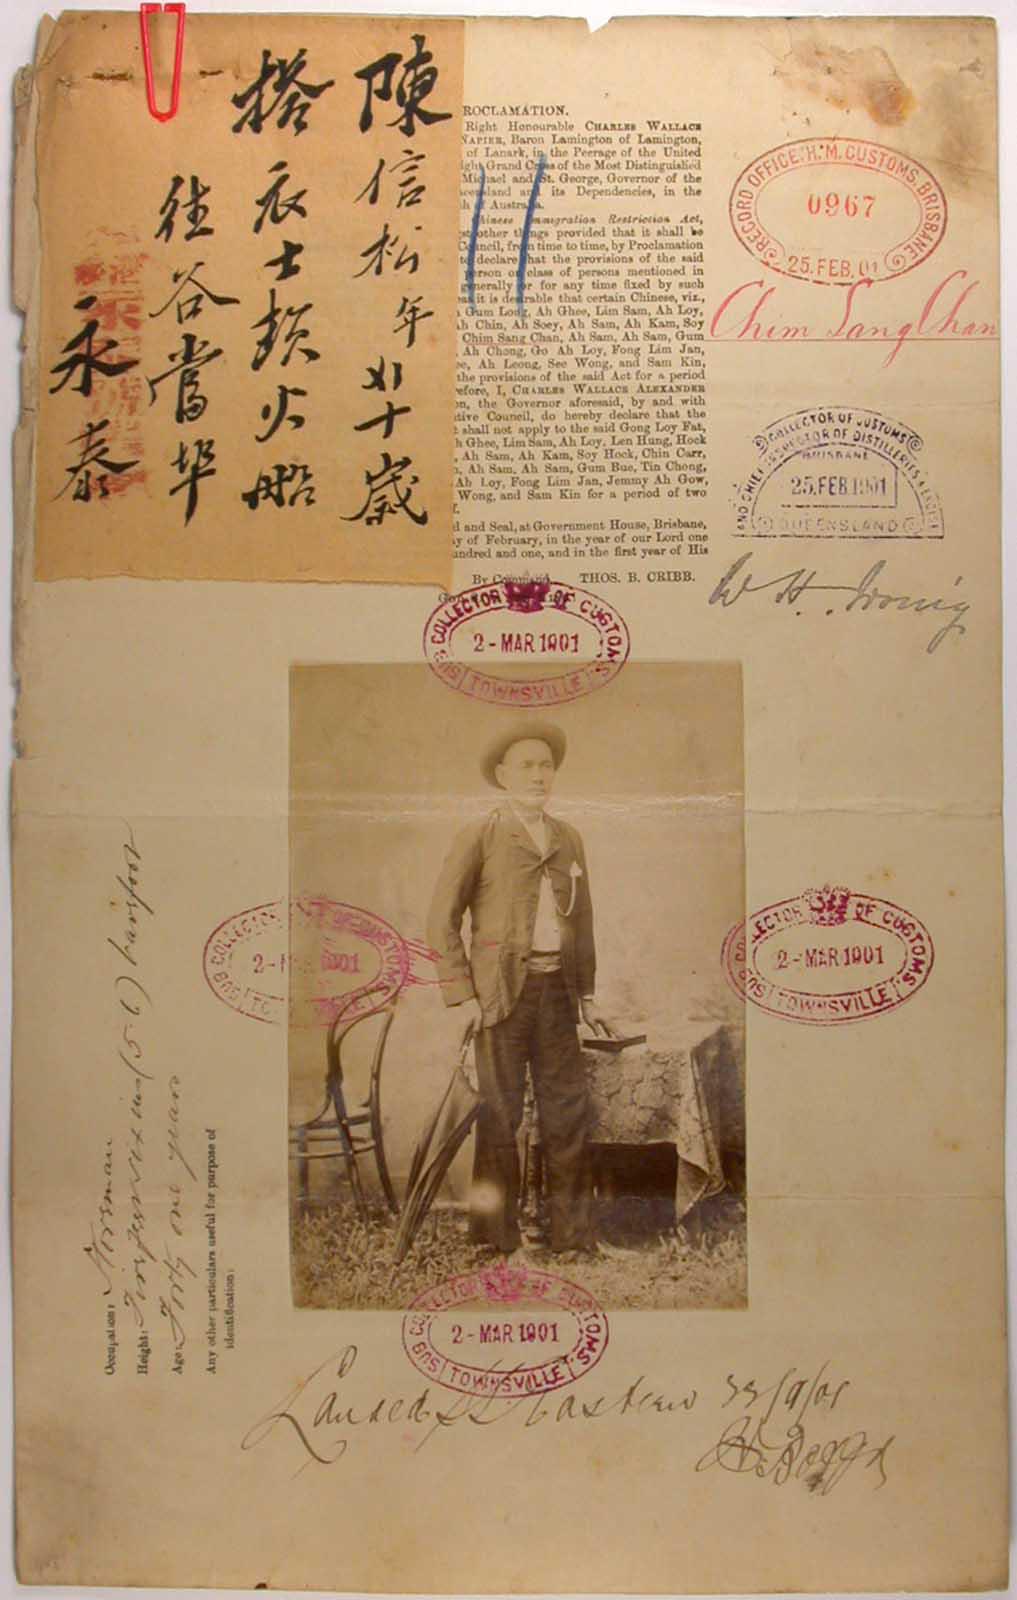 陳信松年㐅十歲
搭衣士頓火船
往谷當埠
永泰
ROCLAMATION.
Right Honourable CHARLES WALLACE
NAPIER, Baron Lamington of Lamington,
of Lanark, in the Peerage of the United
ight Grand Cross of the Most Distinguished
Michael and St. George, Governor of the
eensland and its Dependencies, in the
h of Australia.
Chinese Immigration Restriction Act,
st other things provided that it shall be
Council, from time to time, by Proclamation
to declare that the provisions of the said
person or class of persons mentioned in
generally or for any time fixed by such
eas it is desirable that certain Chinese, viz.,
Gum Long, Ah Ghee, Lim Sam, Ah Loy,
Ah Chin, Ah Soey, Ah Sam, Ah Kam, Soy
Chim Sang Chan, Ah Sam, Ah Sam, Gum
, Ah Chong, Go Ah Loy, Fong Lim Jan,
ee, Ah Leong, See Wong, and Sam Kin,
the provisions of the said Act for a period
refore, I, CHARLES WALLACE ALEXANDER
on, the Governor aforesaid, by and with
tive Council, do hereby declare that the
t shall not apply to the said Gong Loy Fat,
h Ghee, Lim Sam, Ah Loy, Len Hung, Hock
, Ah Sam, Ah Kam, Soy Hock, Chin Carr,
n, Ah Sam, Ah Sam, Gum Bue, Tin Chong,
Ah Loy, Fong Lim Jan, Jemmy Ah Gow,
Wong, and Sam Kin for a period of two
f.
d and Seal, at Government House, Brisbane,
ay of February, in the year of our Lord one
undred and one, and in the first year of His
By Command, THOS. B. CRIBB.
RECORD OFFICE H.M. CUSTOMS, BRISBANE
0967
25.FEB.01
Chim Sang Chan
COLLECTOR OF CUSTOMS
AND CHIEF INSPECTOR OF DISTILLERIES & EXCISE
BRISBANE
25.FEB.1901
QUEENSLAND
SUB COLLECTOR OF CUSTOMS.
2-MAR 1901
TOWNSVILLE
SUB COLLECTOR OF CUSTOMS
2-MAR 1901
TOWNSVILLE
SUB COLLECTOR OF CUSTOMS.
2-MAR 1901
TOWNSVILLE
Occupation:
Height:
Age: Fifty one years
Any other particulars useful for purpose of
identification:
SUB COLLECTOR OF CUSTOMS.
2-MAR 1901
TOWNSVILLE
Landed SS Eastern